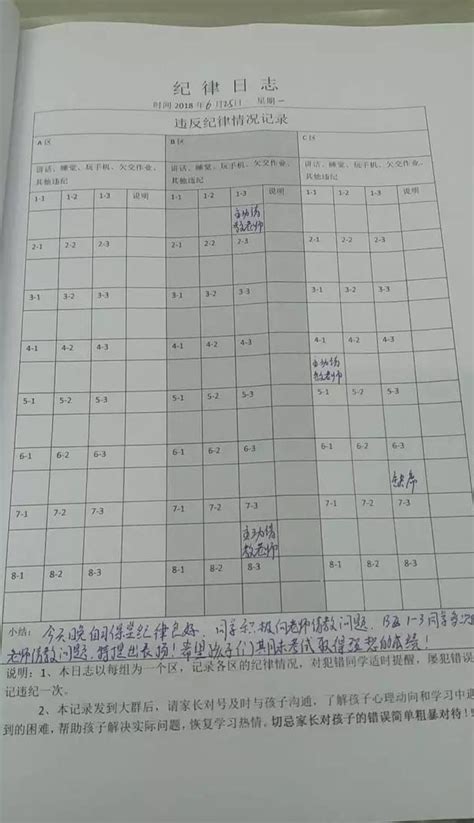 纪 律 日 志
时间 2018 年 6 月 25日 星期一
违反纪律情况记录
A 区 B 区 C 区
讲话、睡觉、玩手机、欠交作业、 讲话、睡觉、玩手机、欠交作业、 讲话、睡觉、玩手机、欠交作业、
其他违纪 其他违纪 其他违纪
1-1 1-2 1-3 说明 1-1 1-2 1-3 说明 1-1 1-2 1-3 说明
主动请
教老师
2-1 2-2 2-3 2-1 2-2 2-3 2-1 2-2 2-3
3-1 3-2 3-3 3-1 3-2 3-3 3-1 3-2 3-3
4-1 4-2 4-3 4-1 4-2 4-3 4-1 4-2 4-3
主动请
教老师
5-1 5-2 5-3 5-1 5-2 5-3 5-1 5-2 5-3
6-1 6-2 6-3 6-1 6-2 6-3 6-1 6-2 6-3
7-1 7-2 7-3 7-1 7-2 7-3 7-1 7-2 7-3
主动请
教老师
8-1 8-2 8-3 8-1 8-2 8-3 8-1 8-2 8-3
小结: 今天晚自习课堂纪律良好,同学积极向老师请教问题,B区1-3同学多次向
老师请教问题,特提出表扬!希望孩子们期末考试取得理想的成绩!
说明:1、本日志以每组为一个区,记录各区的纪律情况,对犯错同学适时提醒,屡犯错误
记违纪一次。
2、本记录发到大群后,请家长对号及时与孩子沟通,了解孩子心理动向和学习中遇
到的困难,帮助孩子解决实际问题,恢复学习热情。切忌家长对孩子的错误简单粗暴对待!